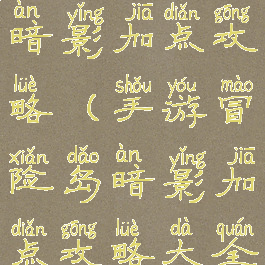 àn yǐng jiā diǎn gōng
暗影加点攻
lüè shǒu yóu mào
略（手游冒
xiǎn dǎo àn yǐng jiā
险岛暗影加
diǎn gōng lüè dà quán
点攻略大全